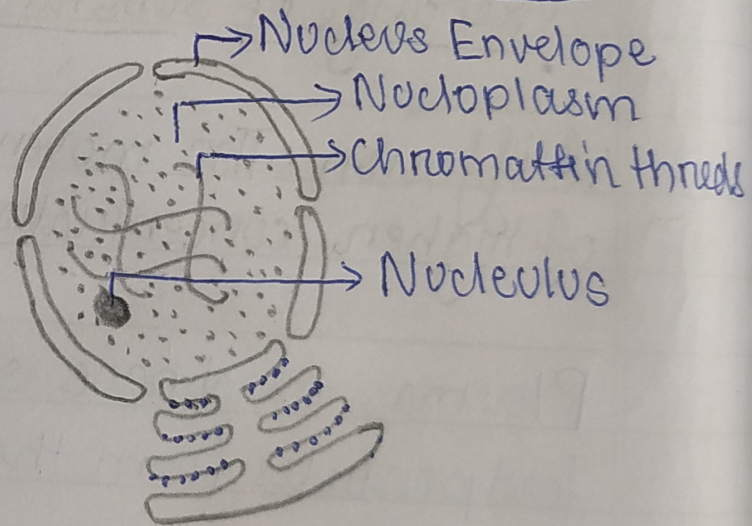 Nucleus Envelope
Nucloplasm
Chromattin threds
Nucleulus